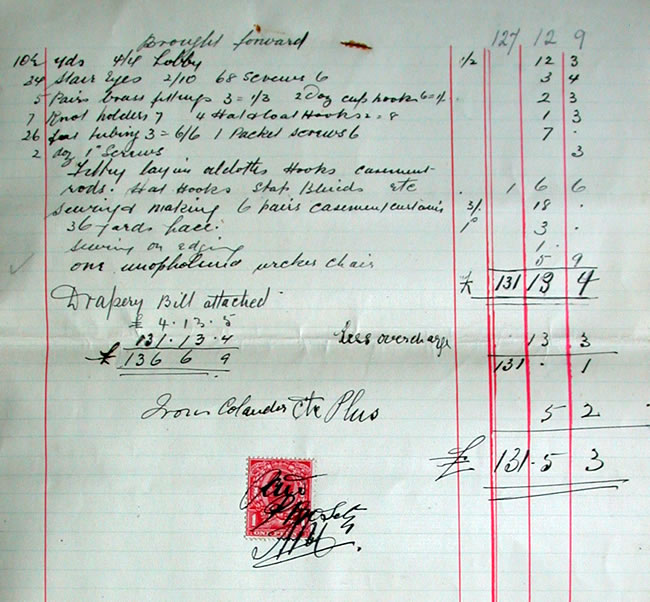 Brought forward 127 12 9
10½ yds 4/4 Lobby 1/2 12 3
34 Stair Eyes 2/10 68 Screws 6 3 4
5 Pairs brass fittings 3 = 1/3 2 Doz cup hooks 6 = 1/- 2 3
7 Knot holders 7 4 Hat & Coat Hooks 2 = 8 1 3
26 feet tubing 3 = 6/6 1 Packet screws 6 7 -
2 doz 1" Screws 3
Fitting laying Hooks casement
rods. Hat Hooks Stap Blinds etc 1 6 6
Sewing & making 6 pairs casement curtains 3/- 18 -
36 yards lace 1d 3 -
Sewing on edging 1 -
one wicker chair 5 9
£ 131 13 4
Drapery Bill attached
£ 4. 13. 5
131. 13. 4
£ 136 6 9
Less overcharge 13 3
131 - 1
Colander Etc Plus 5 2
£ 131. 5 3